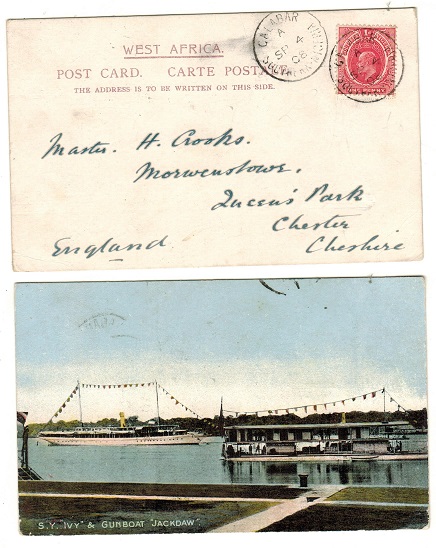 WEST AFRICA.
POST CARD. CARTE POSTA
THE ADDRESS IS TO BE WRITTEN ON THIS SIDE.
CALABAR
A
SP 4
08
Master. H. Crooks.
Morwenstowe.
Queen's Park
Chester
England Cheshire
S.Y. "IVY" & GUNBOAT "JACKDAW".